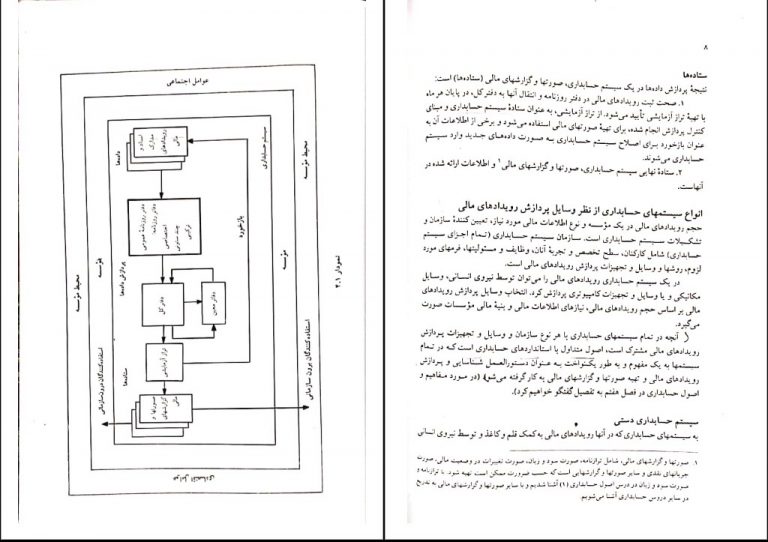 ۸
ستاده‌ها
نتیجهٔ پردازش داده‌ها در یک سیستم حسابداری، صورتها و گزارشهای مالی (ستاده‌ها) است:
۱. صحت ثبت رویدادهای مالی در دفتر روزنامه و انتقال آنها به دفتر کل، در پایان هر ماه
با تهیهٔ تراز آزمایشی تأیید می‌شود. از تراز آزمایشی، به عنوان ستادهٔ سیستم حسابداری و مبنای
کنترل پردازش انجام شده، برای تهیهٔ صورتهای مالی استفاده می‌شود و برخی از اطلاعات آن به
عنوان بازخورد برای اصلاح سیستم حسابداری به صورت داده‌های جدید وارد سیستم
حسابداری می‌شوند.
۲. ستادهٔ نهایی سیستم حسابداری، صورتها و گزارشهای مالی۱ و اطلاعات ارائه شده در
آنهاست.
انواع سیستمهای حسابداری از نظر وسایل پردازش رویدادهای مالی
حجم رویدادهای مالی در یک مؤسسه و نوع اطلاعات مالی مورد نیاز، تعیین‌کنندهٔ سازمان و
تشکیلات سیستم حسابداری است. سازمان سیستم حسابداری (تمام اجزای سیستم
حسابداری) شامل کارکنان، سطح تخصص و تجربهٔ آنان، وظایف و مسئولیتها، فرمهای مورد
لزوم، روشها و وسایل و تجهیزات پردازش رویدادهای مالی است.
در یک سیستم حسابداری رویدادهای مالی را می‌توان توسط نیروی انسانی، وسایل
مکانیکی و یا وسایل و تجهیزات کامپیوتری پردازش کرد. انتخاب وسایل پردازش رویدادهای
مالی بر اساس حجم رویدادهای مالی، نیازهای اطلاعات مالی و بنیهٔ مالی مؤسسات صورت
می‌گیرد.
آنچه در تمام سیستمهای حسابداری با هر نوع سازمان و وسایل و تجهیزات پردازش
رویدادهای مالی مشترک است، اصول متداول یا استانداردهای حسابداری است که در تمام
سیستمها به یک مفهوم و به طور یکنواخت به عنوان دستورالعمل شناسایی و پردازش
رویدادهای مالی و تهیه صورتها و گزارشهای مالی به کار گرفته می‌شود (در مورد مفاهیم و
اصول حسابداری در فصل هفتم به تفصیل گفتگو خواهیم کرد).
سیستم حسابداری دستی
به سیستمهای حسابداری که در آنها رویدادهای مالی به کمک قلم و کاغذ و توسط نیروی انسانی
۱. صورتها و گزارشهای مالی، شامل ترازنامه، صورت سود و زیان، صورت تغییرات در وضعیت مالی، صورت
جریانهای نقدی و سایر صورتها و گزارشهایی است که حسب ضرورت ممکن است تهیه شود. با ترازنامه و
صورت سود و زیان در درس اصول حسابداری (۱) آشنا شدیم و با سایر صورتها و گزارشهای مالی به تدریج
در سایر دروس حسابداری آشنا می‌شویم.
عوامل اجتماعی
محیط مؤسسه
مؤسسه
سیستم حسابداری
داده‌ها
اسناد و
مدارک
رویدادهای
مالی
بازخورد
پردازش داده‌ها
دفتر روزنامهٔ عمومی
دفاتر روزنامهٔ
اختصاصی
چند ستونی
ترکیبی
دفتر کل
دفاتر معین
تراز آزمایشی
ستاده‌ها
صورتها و
گزارشهای
مالی
مؤسسه
محیط مؤسسه
استفاده‌کنندگان درون سازمانی
استفاده‌کنندگان برون سازمانی
عوامل اقتصادی
نمودار ۲.۱